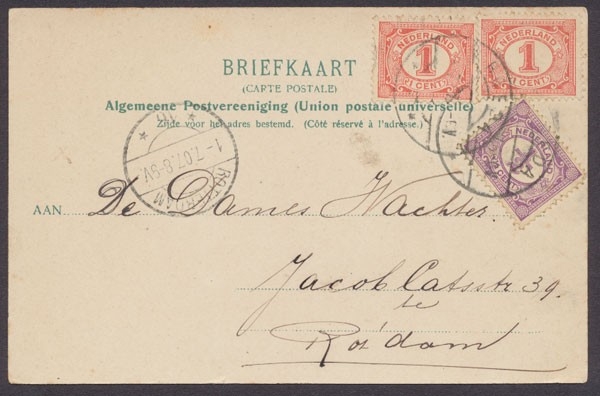 NEDERLAND
1
1 CENT
NEDERLAND
1
1 CENT
BRIEFKAART
(CARTE POSTALE)
Algemeene Postvereeniging (Union postale universelle)
Zijde voor het adres bestemd. (Côté réservé à l'adresse.)
NEDERLAND
1-7.07.8-9V
ROTTERDAM
AAN De Dames Wachter.
Jacob Catsstr 39.
te
Rot'dam